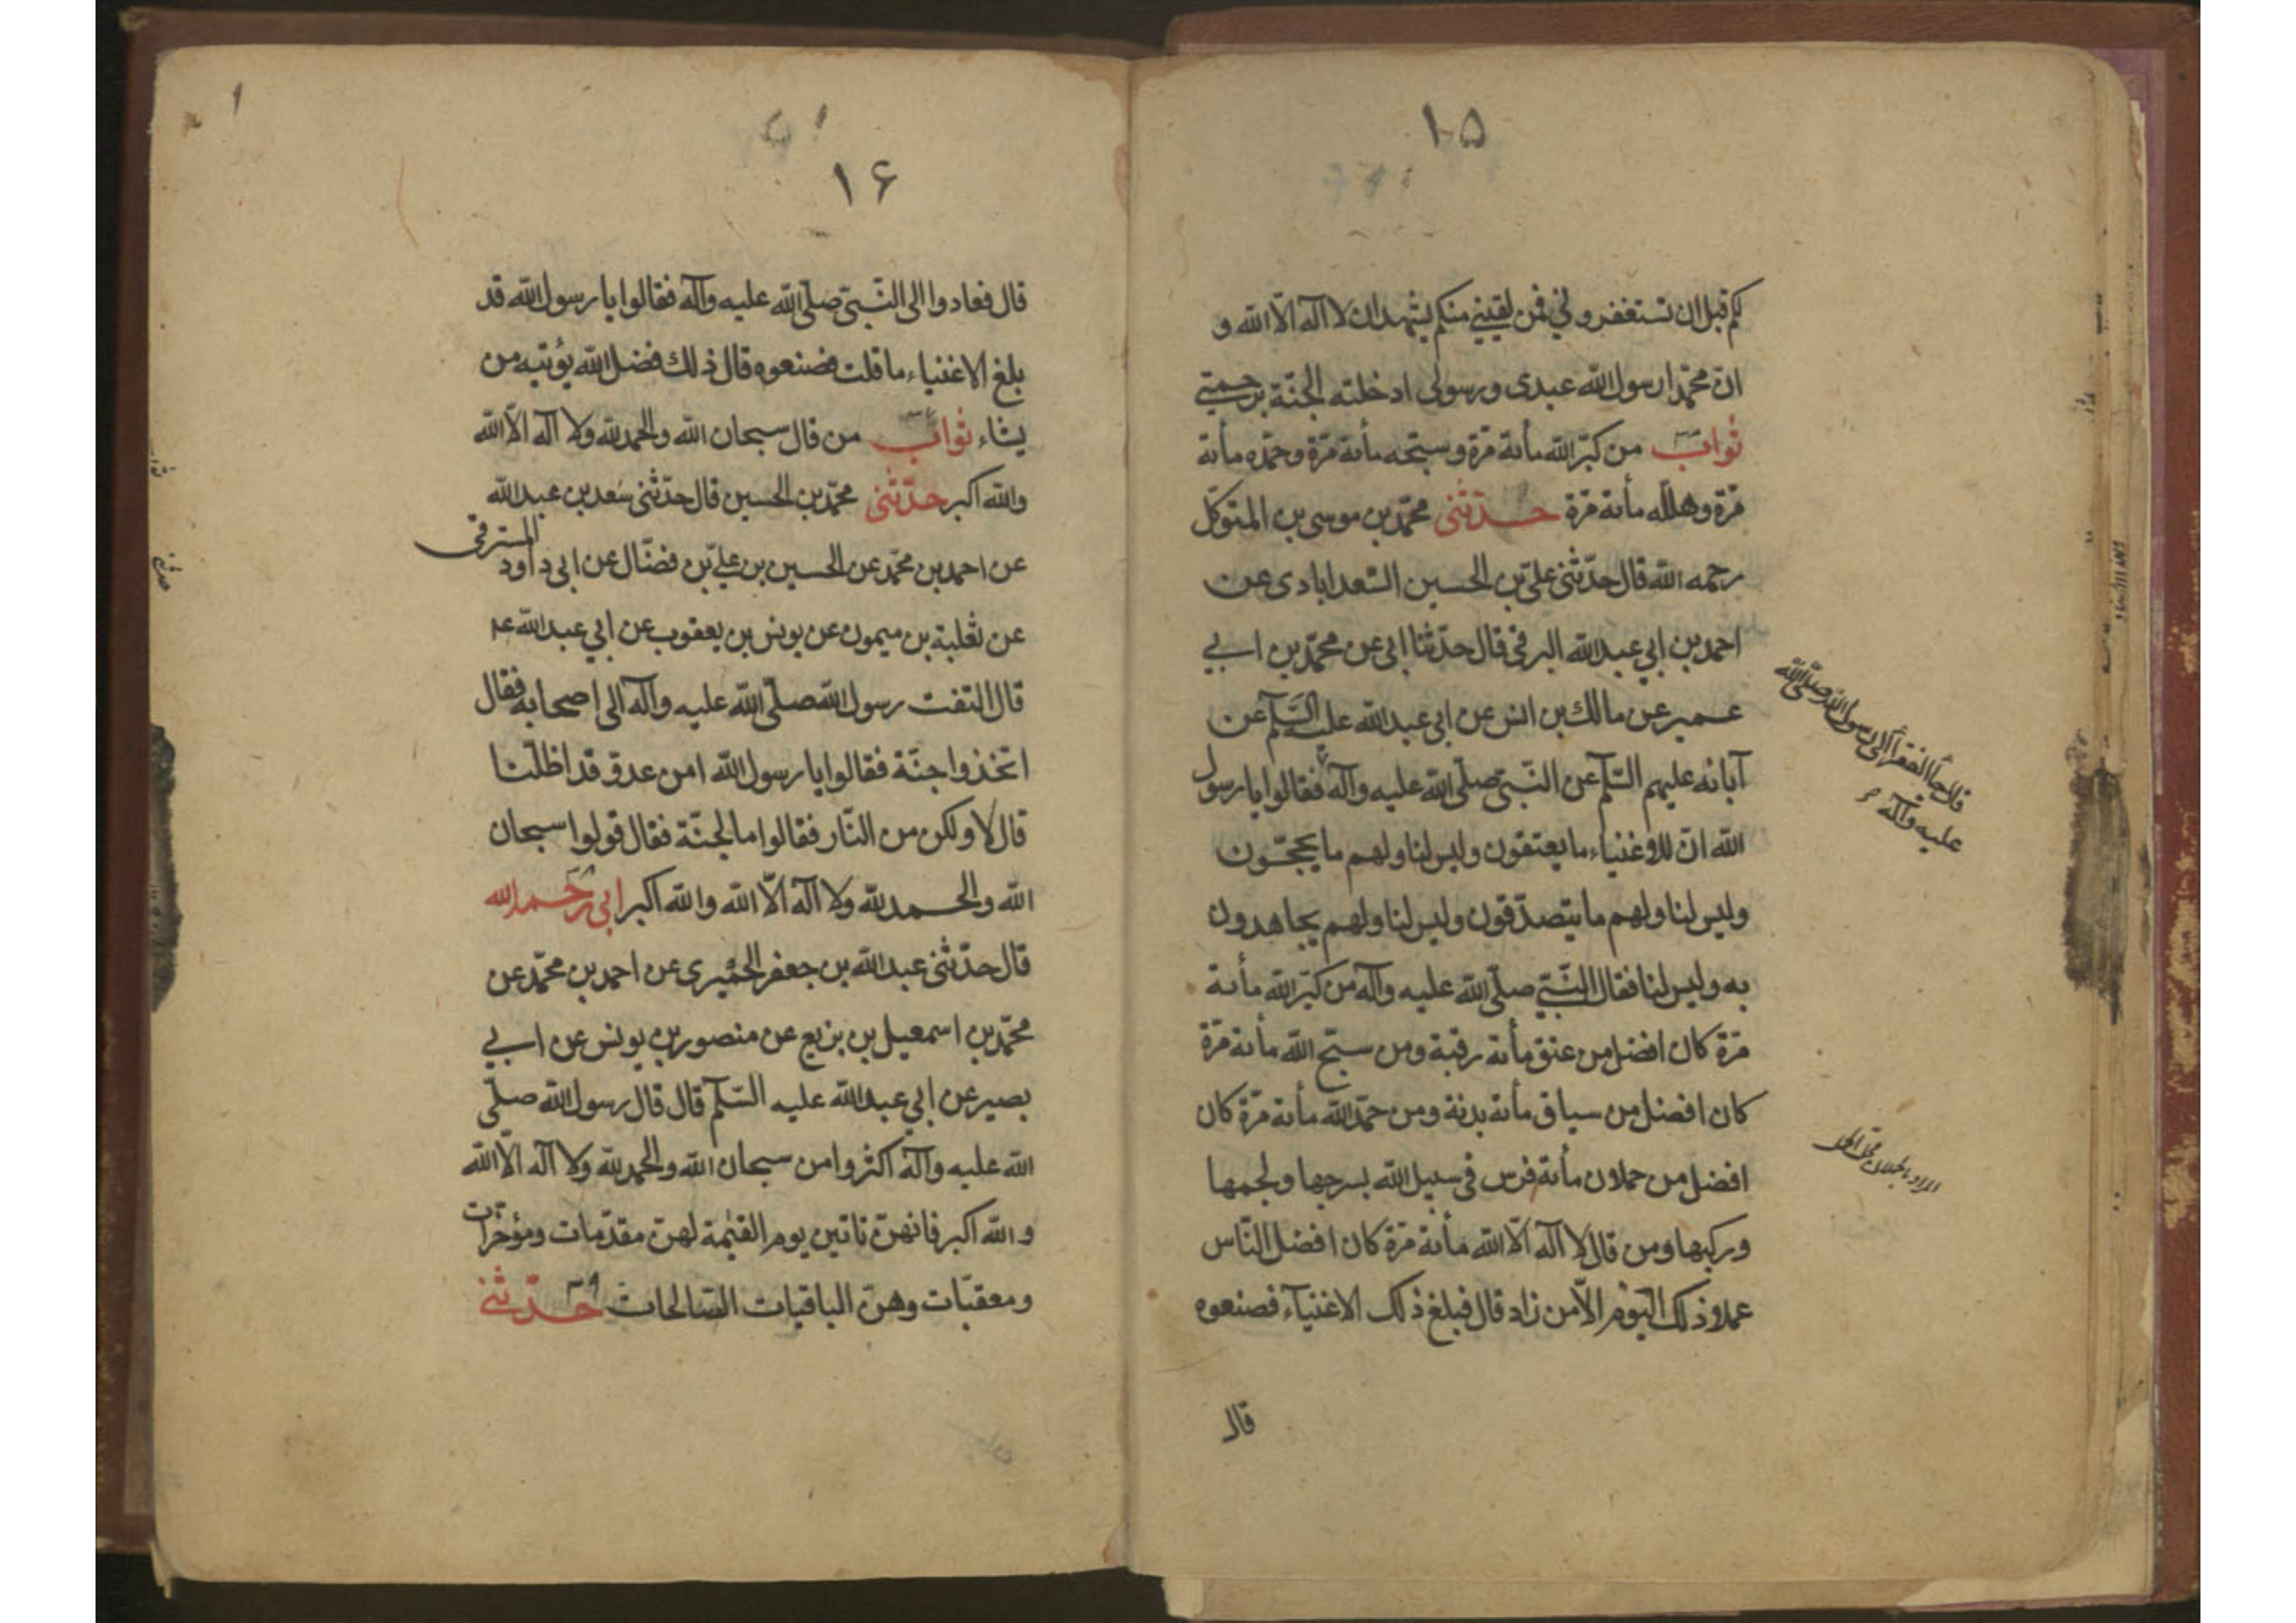 ١٥
لكم قبل ان تستغفروني فمن لقيني منكم يشهد ان لا اله الّا الله و
انّ محمّدا رسول الله عبدى ورسولى ادخلته الجنّة برحمتي
ثواب من كبّر الله مأىة مرّة وسبّحه مأىة مرّة وحمّده مأىة
مرّة وهلله مأىة مرّة حدّثنى محمّد بن موسى بن المتوكّل
رحمه الله قال حدّثنى علىّ بن الحسين السّعدابادى عن
احمد بن ابي عبد الله البرقى قال حدّثنا ابى عن محمّد بن ابي
عمير عن مالك بن انس عن ابى عبد الله عليه السّلم عن
آبائه عليهم السّلم عن النّبىّ صلّى الله عليه وآله فقالوا يا رسول
قال جاء الفقراء الى رسول الله صلّى الله
عليه وآله
الله انّ للاغنياء ما يعتقون وليس لنا ولهم ما يحجّون
وليس لنا ولهم ما يتصدّقون وليس لنا ولهم يجاهدون
به وليس لنا فقال النّبيّ صلّى الله عليه وآله من كبّر الله مأىة
مرّة كان افضل من عتق مأىة رقبة ومن سبّح الله مأىة مرّة
كان افضل من سياق مأىة بدنة ومن حمّد الله مأىة مرّة كان
افضل من حملان مأىة فرس فى سبيل الله بسرجها ولجمها
وركبها ومن قال لا اله الّا الله مأىة مرّة كان افضل النّاس
عملا ذلك اليوم الّا من زاد قال فبلغ ذلك الاغنيآء فصنعوه
قال
١۶
قال فعادوا الى النّبىّ صلّى الله عليه وآله فقالوا يا رسول الله قد
بلغ الاغنياء ما قلت فصنعوه قال ذلك فضل الله يؤتيه من
يشاء ثواب من قال سبحان الله والحمد لله ولا اله الّا الله
والله اكبر حدّثنى محمّد بن الحسين قال حدّثنى سعد بن عبد الله
عن احمد بن محمّد عن الحسين بن علىّ بن فضّال عن ابى داود المسترقى
عن ثعلبة بن ميمون عن يونس بن يعقوب عن ابي عبد الله ع
قال التفت رسول الله صلّى الله عليه وآله الى اصحابه فقال
اتخذوا جنّة فقالوا يا رسول الله امن عدوّ قد اظلّنا
قال لا ولكن من النّار فقالوا ما الجنّة فقال قولوا سبحان
الله والحمد لله ولا اله الّا الله والله اكبر ابى رحمه الله
قال حدّثنى عبد الله بن جعفر الحميرى عن احمد بن محمّد عن
محمّد بن اسمعيل بن بزيع عن منصور بن يونس عن ابي
بصير عن ابي عبد الله عليه السّلم قال قال رسول الله صلّى
الله عليه وآله اكثروا من سبحان الله والحمد لله ولا اله الّا الله
والله اكبر فانهنّ تاتين يوم القيٰمة لهنّ مقدّمات ومؤخّرات
ومعقبّات وهنّ الباقيات الصّالحات حدّثني